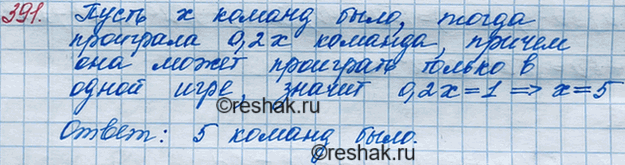 391. Пусть х команд было, тогда
проиграла 0,2х команда, причем
она может проиграть только в
одной игре, значит 0,2х=1 ⇒ х=5
©reshak.ru
Ответ: 5 команд было.
©reshak.ru